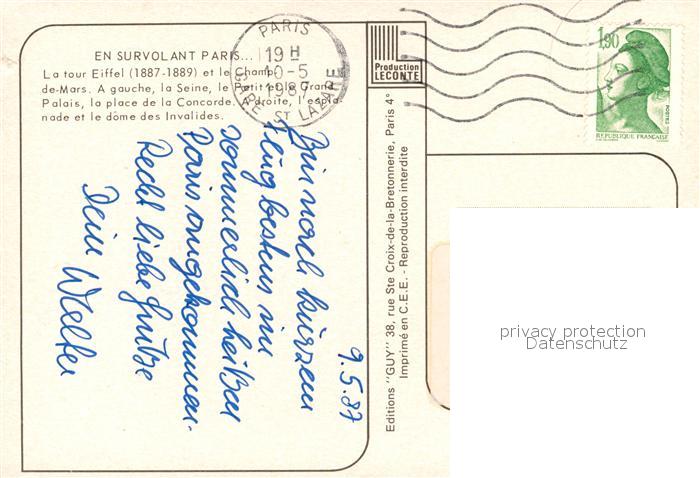 EN SURVOLANT PARIS...
La tour Eiffel (1887-1889) et le Champ-
de-Mars. A gauche, la Seine, le Petit et le Grand
Palais, la place de la Concorde. A droite, l'espla-
nade et le dôme des Invalides.
PARIS
19 H
10-5
1987
GARE ST LAZARE
Production
LECONTE
1,90
POSTES
REPUBLIQUE FRANÇAISE
9.5.87
Bin nach kurzem
Flug bestens im
sommerlich heißen
Paris angekommen.
Recht liebe Grüße
Dein Walter
Editions "GUY" 38, rue Ste Croix-de-la-Bretonnerie, Paris 4e
Imprimé en C.E.E. - Reproduction interdite
privacy protection
Datenschutz